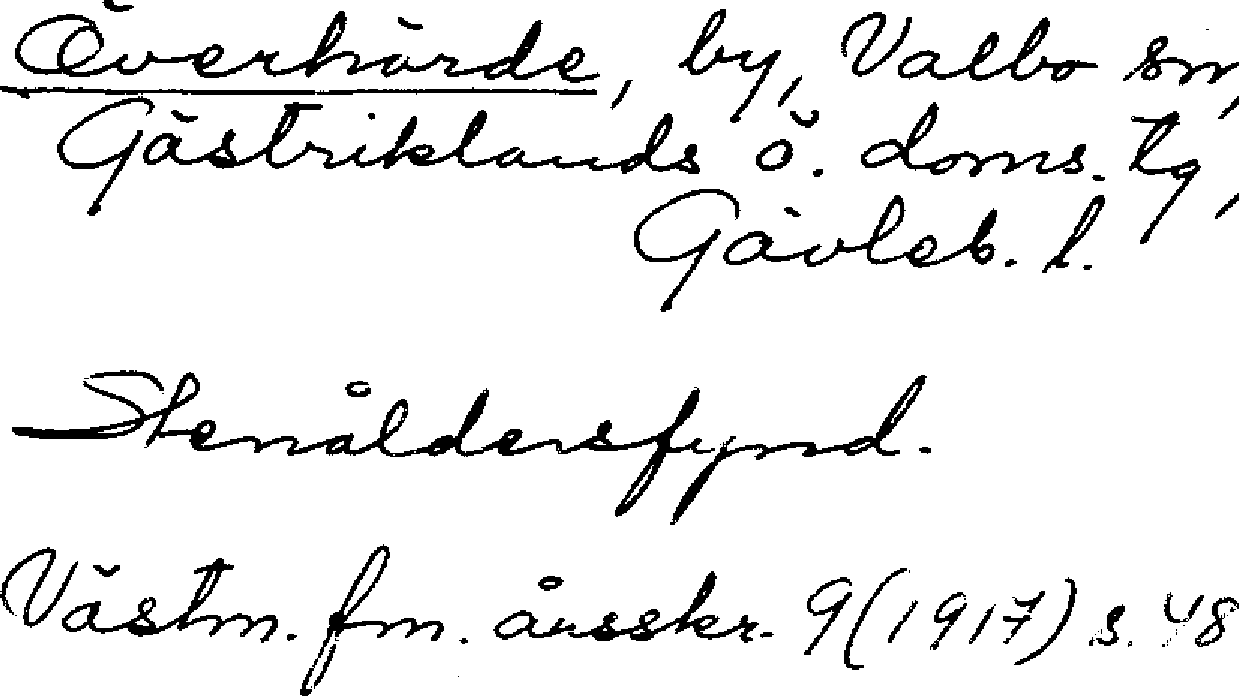 Överhärde, by, Valbo sn,
Gästriklands ö. doms. tg,
Gävleb. l.
Stenåldersfynd.
Västm. fm. årsskr. 9 (1917) s. 48